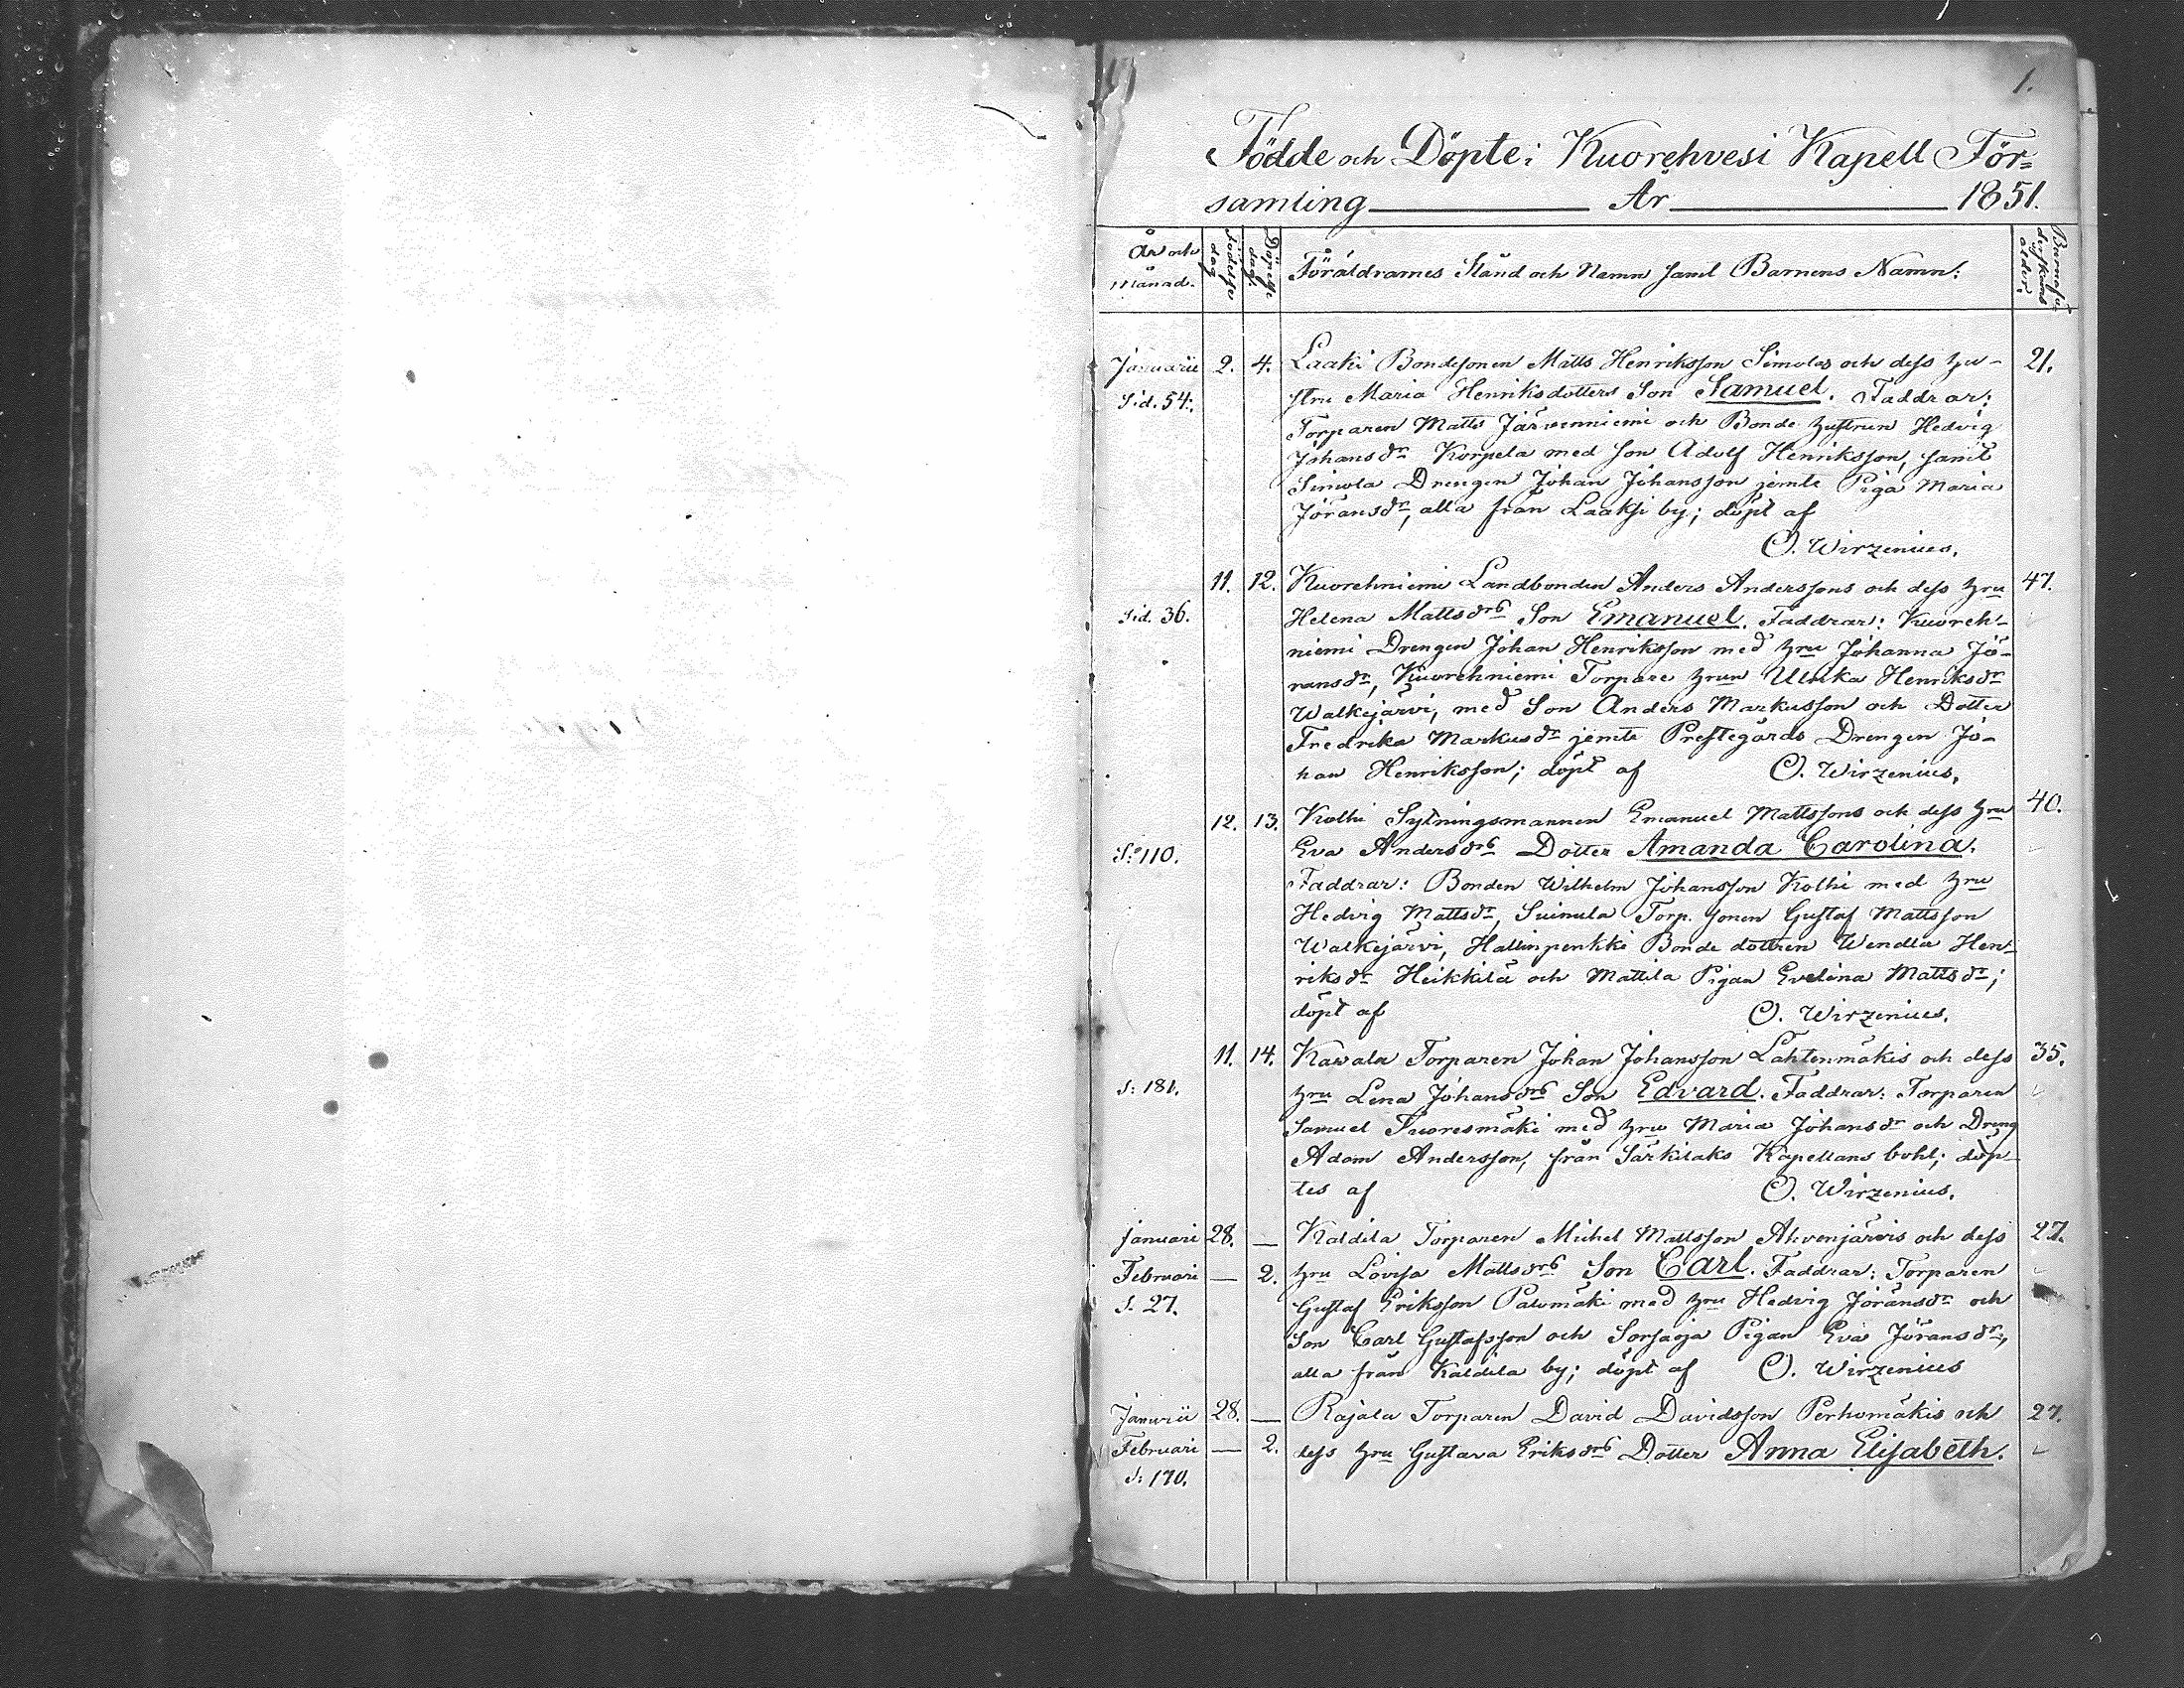 1.
Födde och Döpte i Kuorehvesi Kapell För=
samling År 1851.
År och Månad. Födelse dag Döpelse dag. Föräldrarnes Stånd och Namn samt Barnens Namn: Barnaföderskans ålder.
Januarii 2. 4. Laaki Bondesonen Matts Henriksson Simolas och dess hu- 21.
Sid. 54. stru Maria Henriksdotters Son Samuel. Faddrar:
Torparen Matts Järvenniemi och Bonde hustrun Hedvig
Johansdr Korpela med Son Adolf Henriksson, samt
Simola Drengen Johan Johansson jemte Piga Maria
Jöransdr, alla från Laaksi by; döpt af
O. Wirzenius.
11. 12. Kuorehniemi Landbonden Anders Anderssons och dess hru 47.
Sid. 36. Helena Mattsdrs Son Emanuel. Faddrar: Kuoreh-
niemi Drengen Johan Henriksson med hru Johanna Jö-
ransdr, Kuorehniemi Torpare hrun Ulrika Henriksdr
Walkejärvi, med Son Anders Markusson och Dotter
Fredrika Markusdr jemte Prestegårds Drengen Jo-
han Henriksson; döpt af O. Wirzenius.
12. 13. Kolhi Sytningsmannen Emanuel Mattssons och dess hru 40.
S: 110. Eva Andersdrs Dotter Amanda Carolina.
Faddrar: Bonden Wilhelm Johansson Kolhi med hru
Hedvig Mattsdr, Suinula Torp. sonen Gustaf Mattsson
Walkejärvi, Hallinpenkki Bonde dottren Wendla Hen-
riksdr Heikkilä och Mattila Pigan Evelina Mattsdr;
döpt af O. Wirzenius.
11. 14. Kawala Torparen Johan Johansson Lahtenmäkis och dess 35.
S: 181. hru Lena Johansdrs Son Edvard. Faddrar: Torparen
Samuel Tuoresmäki med hru Maria Johansdr och Dreng
Adam Andersson, från Särkilaks Kapellans bohl; döp-
tes af O. Wirzenius.
januari 28. — Kaldila Torparen Michel Mattsson Ahvenjärvis och dess 27.
Februari — 2. hru Lovisa Mattsdrs Son Carl. Faddrar: Torparen
S. 27. Gustaf Eriksson Palomäki med hru Hedvig Jöransdr och
Son Carl Gustafsson och Sorsaoja Pigan Eva Jöransdr,
alla från Kaldila by; döpt af O. Wirzenius
Januarii 28. — Rajala Torparen David Davidsson Perhomäkis och 27.
Februari — 2. dess hru Gustava Eriksdrs Dotter Anna Elisabeth.
S: 170.